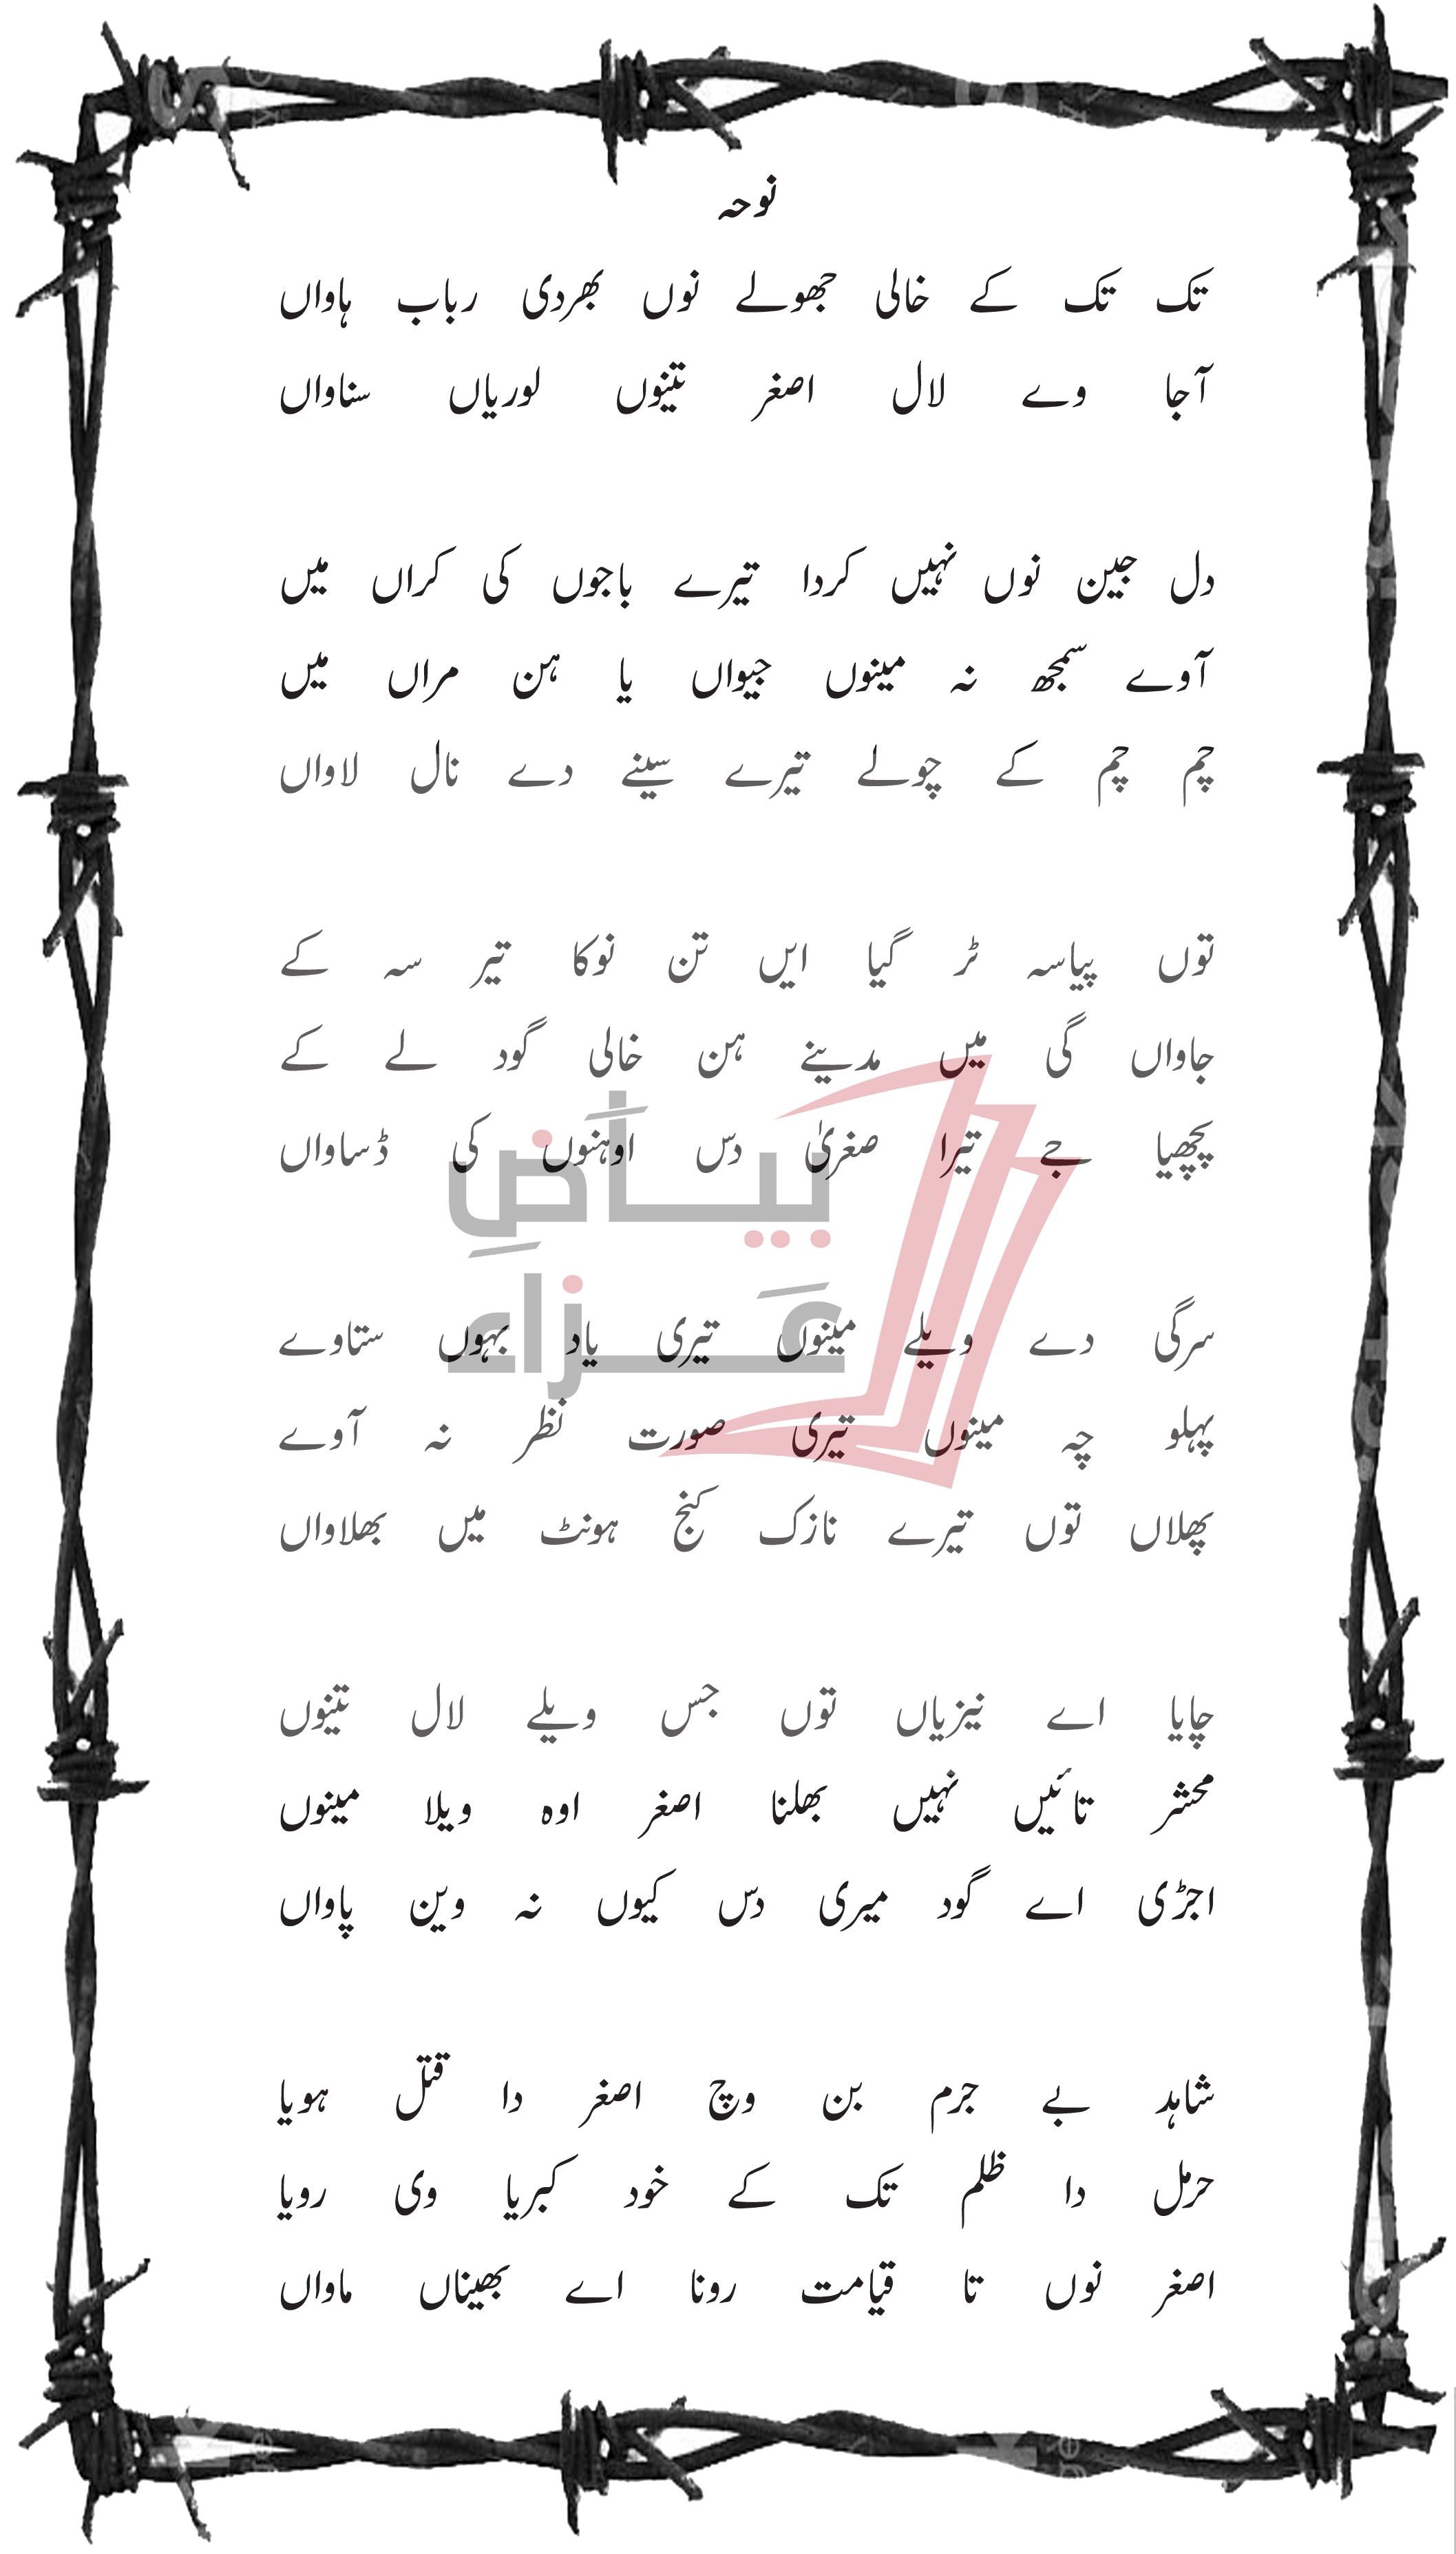 نوحہ
تک تک کے خالی جھولے نوں بھردی رباب ہاواں
آجا وے لال اصغر تینوں لوریاں سناواں
دل جین نوں نہیں کردا تیرے باجوں کی کراں میں
آوے سمجھ نہ مینوں جیواں یا ہن مراں میں
چم چم کے چولے تیرے سینے دے نال لاواں
توں پیاسہ ٹر گیا ایں تن نوکا تیر سہ کے
جاواں گی میں مدینے ہن خالی گود لے کے
پچھیا جے تیرا صغریٰ دس اوہنوں کی ڈساواں
سرگی دے ویلے مینوں تیری یاد بہوں ستاوے
پہلو چہ مینوں تیری صورت نظر نہ آوے
پھلاں توں تیرے نازک کنج ہونٹ میں بھلاواں
چایا اے نیزیاں توں جس ویلے لال تینوں
محشر تائیں نہیں بھلنا اصغر اوہ ویلا مینوں
اجڑی اے گود میری دس کیوں نہ وین پاواں
شاہد بے جرم بن وچ اصغر دا قتل ہویا
حرمل دا ظلم تک کے خود کبریا وی رویا
اصغر نوں تا قیامت رونا اے بھیناں ماواں
بیاضِ
عَزاء